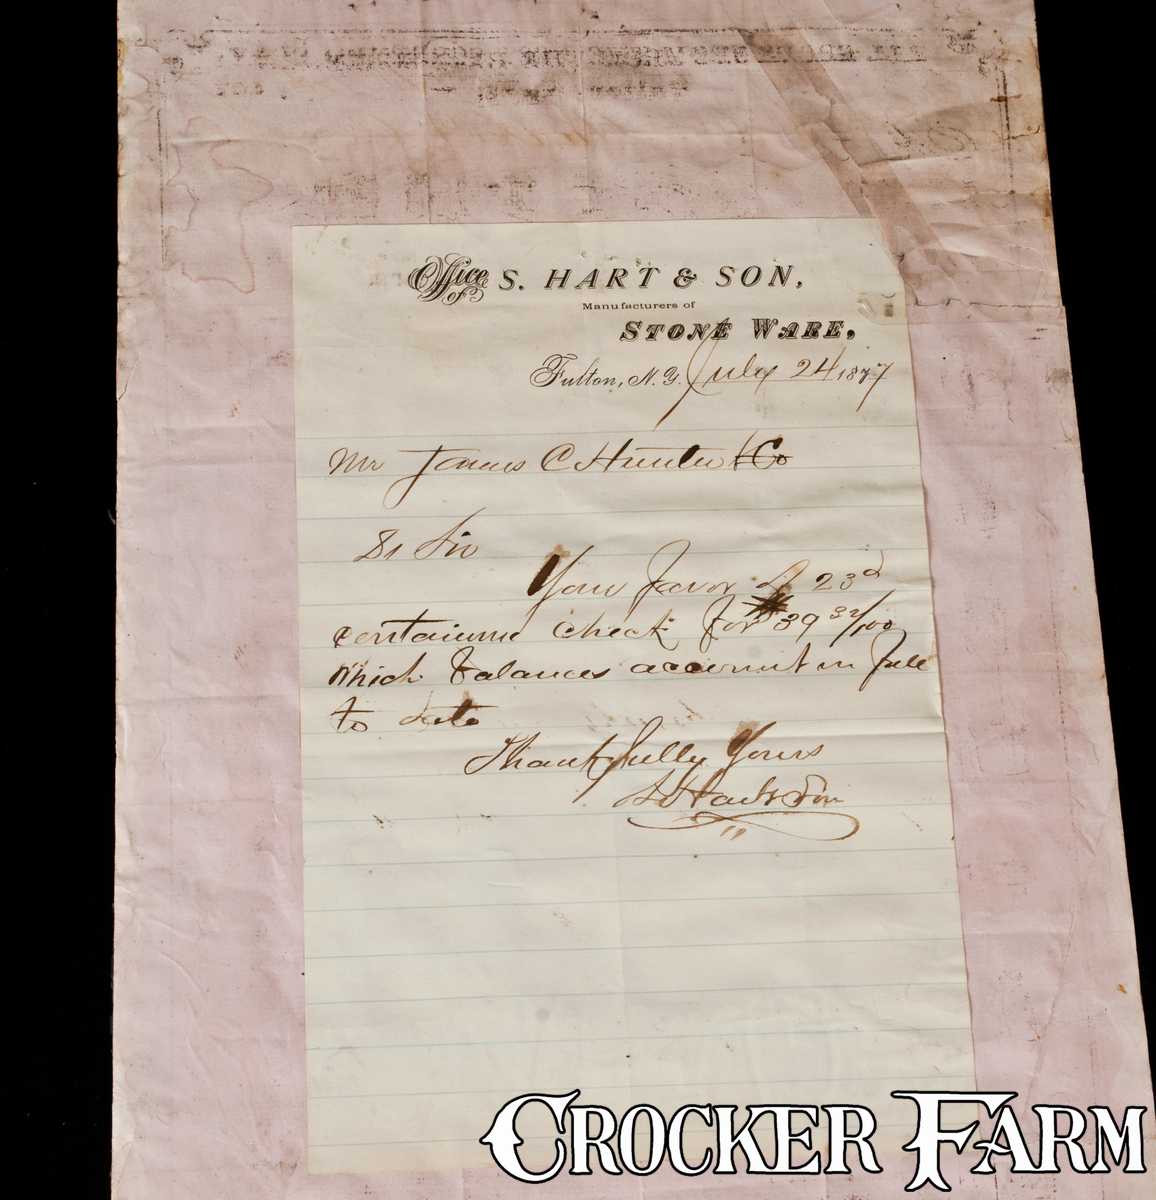 Office of S. HART & SON,
Manufacturers of
STONE WARE,
Fulton, N.Y. July 24 1877
Mr James C Hunter & Co
Dr Sir
Your favor of 23d
containing check for 39 32/100
which balances account in full
to date
Thankfully Yours
S Hart & Son
CROCKER FARM